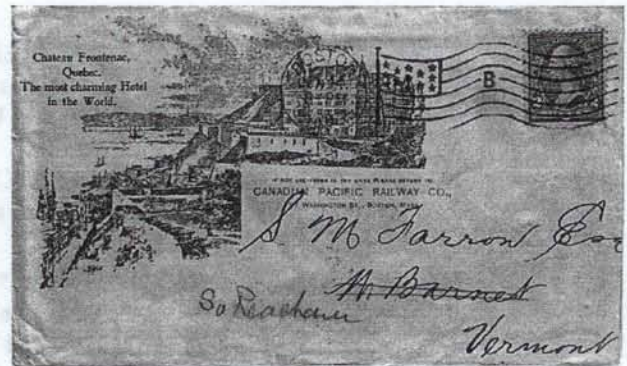 Chateau Frontenac,
Quebec.
The most charming Hotel
in the World.
BOSTON
B
CANADIAN PACIFIC RAILWAY CO.,
WASHINGTON ST., BOSTON, MASS.
S M Farron Esq
W. Barnet
So
Vermont